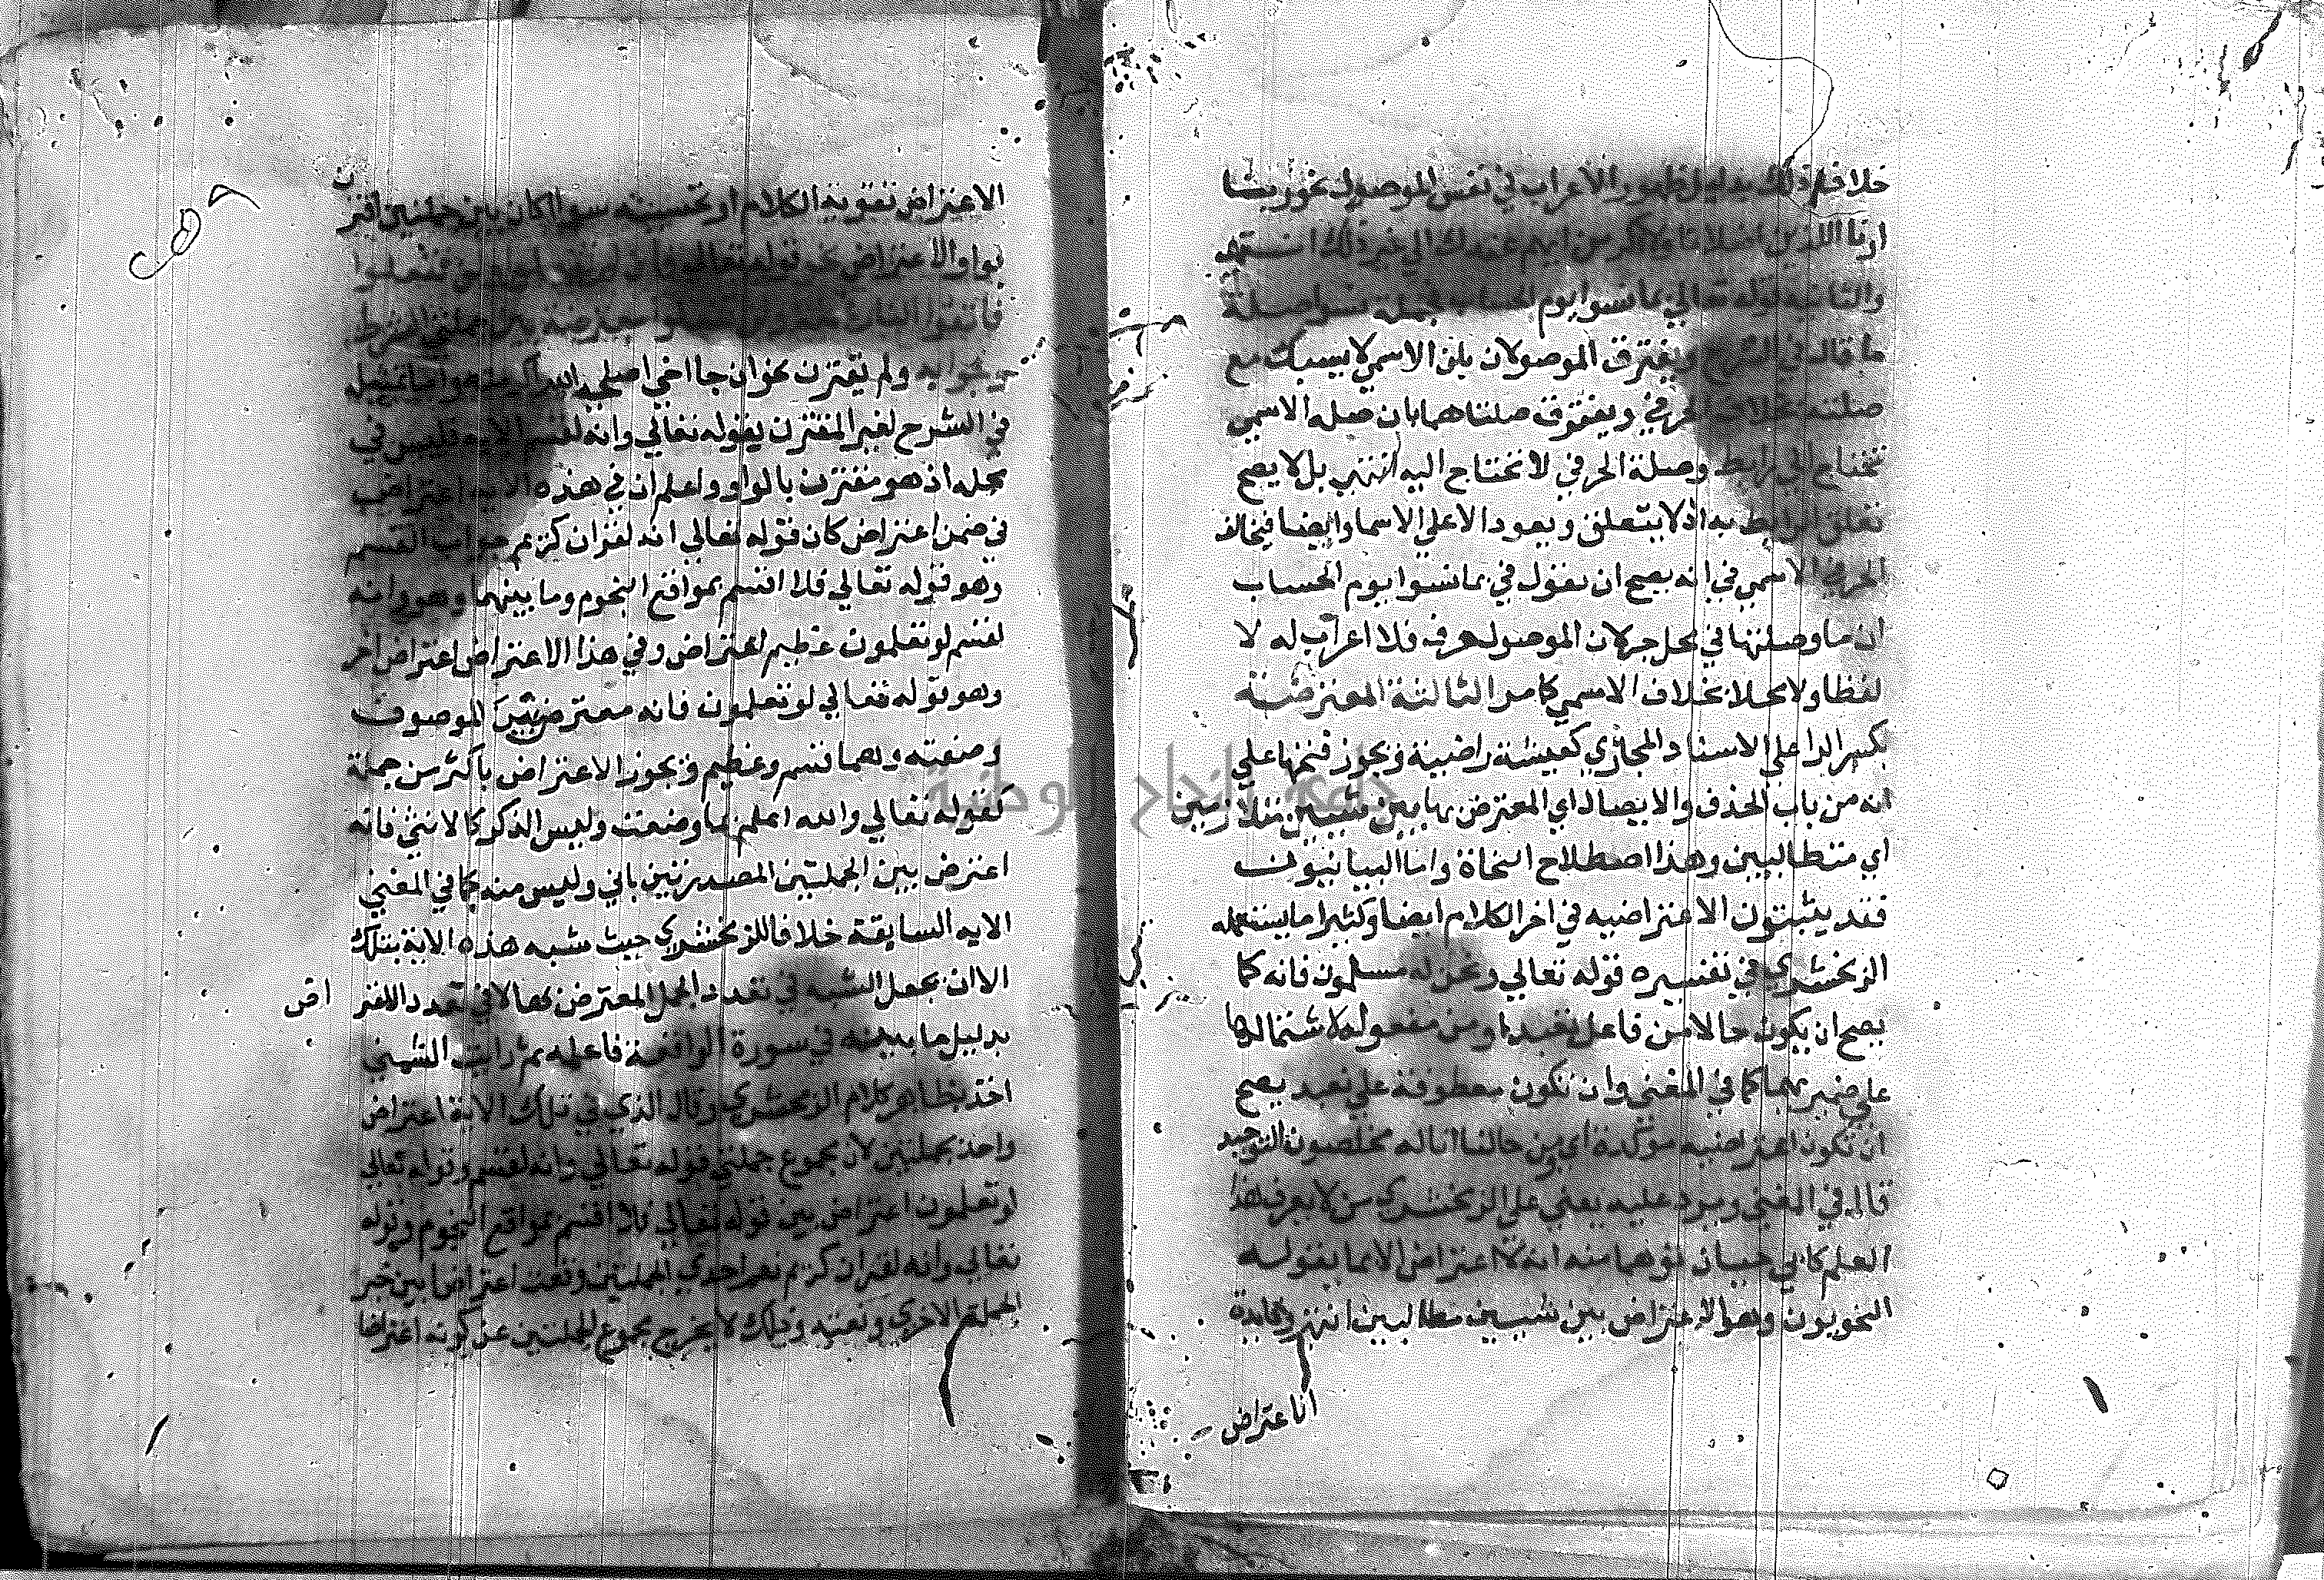 خلافا لذلك بدليل ظهور الاعراب في نفس الموصول نحو ربنا
ارنا اللذين اضلانا
والثانية قوله تعالي بما نسوا يوم الحساب فجملة نسوا صلة
ما قال في الشرح ويفترق الموصولان بان الاسمي لا يسبك مع
صلته بخلاف الحرفي ويفترق صلتاهما بان صله الاسمي
تحتاج الي رابط وصلة الحرفي لا تحتاج اليه انتهي بل لا يصح
تعلق الرابط به اذ لا يتعلق ويعود الا علي الاسما وايضا فيخالف
الحرفي الاسمي في انه يصح ان نقول في بما نسوا يوم الحساب
ان ما وصلتها في محل جر لان الموصول حرف فلا اعراب له لا
لفظا ولا محلا بخلاف الاسمي كما مر الثالثة المعترضة
بكسر الرا علي الاسناد المجازي كعيشة راضية ويجوز فتحها علي
انه من باب الحذف والايصال اي المعترض بها بين شيئين متلازمين
اي متطالبين وهذا اصطلاح النحاة واما البيانيون
فقد يثبتون الاعتراضيه في اخر الكلام ايضا وكثيرا ما يستعمله
الزمخشري في تفسيره قوله تعالي ونحن له مسلمون فانه كما
يصح ان يكون حالا من فاعل نعبد او من مفعوله لاشتمالها
علي ضميريهما كما في المغني وان تكون معطوفة علي نعبد يصح
ان تكون اعتراضيه موكدة اي من حالنا انا له مخلصون التوحيد
قال في المغني ويرد عليه يعني علي الزمخشري من لا يعرف هذا
العلم كابي حيان توهما منه انه لا اعتراض الا ما يقوله
النحويون وهو الاعتراض بين شييين متطالبين انتهي وفايدة
انا عتراض
الاعتراض تقوية الكلام او تحسينه سوا كان بين جملتين اقترن
بواو الاعتراض كقوله تعالي فان لم تفعلوا ولن تفعلوا
فاتقوا النار معترضة بين جملتي الشرط
وجوابه ولم تقترن نحو ان جا اخي اصلحه الله اكرمته واما تمثيل
في الشرح لغير المقترن بقوله تعالي وانه لقسم الايه فليس في
محله اذ هو مقترن بالواو واعلم ان في هذه الايه اعتراض
في ضمن اعتراض كان قوله تعالي انه لقران كريم جواب القسم
وهو قوله تعالي فلا اقسم بمواقع النجوم وما بينهما وهو وانه
لقسم لو تعلمون عظيم اعتراض وفي هذا الاعتراض اعتراض اخر
وهو قوله تعالي لو تعلمون فانه معترض بين الموصوف
وصفته وهما قسم وعظيم ويجوز الاعتراض باكثر من جملة
كقوله تعالي والله اعلم بما وضعت وليس الذكر كالانثي فانه
اعترض بين الجملتين المصدرتين باني وليس منه كما في المغني
الايه السابقة خلافا للزمخشري حيث شبه هذه الاية بتلك
الا ان يجعل الشبه في تعدد الجمل المعترض بها لا في تعدد الاعتر اض
بدليل ما بينه في سورة الواقعة فاعلمه ثم رايت الشمني
اخذ بظاهر كلام الزمخشري وقال الذي في تلك الاية اعتراض
واحد بجملتين لان مجموع جملتي قوله تعالي وانه لقسم وقوله تعالي
لو تعلمون اعتراض بين قوله تعالي فلا اقسم بمواقع النجوم وقوله
تعالي وانه لقران كريم نعم احدي الجملتين وقعت اعتراضا بين خبر
الجملة الاخري ونعته وذلك لا يخرج مجموع الجملتين عن كونه اعتراضا